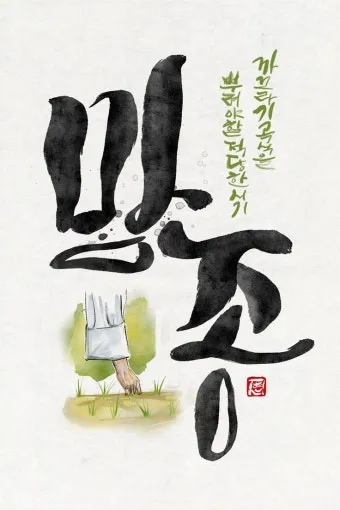 망종
까끄라기 곡식은
뿌려야할 적당한 시기